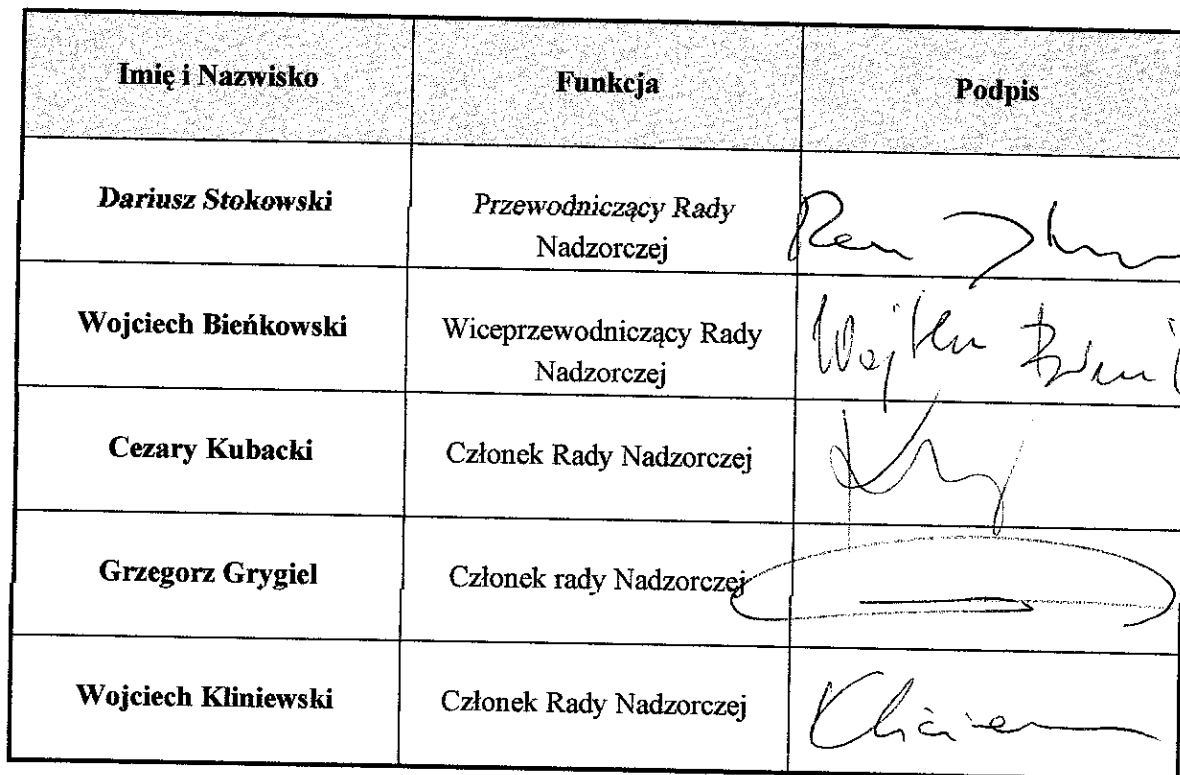 Imię i Nazwisko Funkcja Podpis
Dariusz Stokowski Przewodniczący Rady
Nadzorczej
Wojciech Bieńkowski Wiceprzewodniczący Rady
Nadzorczej
Cezary Kubacki Członek Rady Nadzorczej
Grzegorz Grygiel Członek rady Nadzorczej
Wojciech Kliniewski Członek Rady Nadzorczej